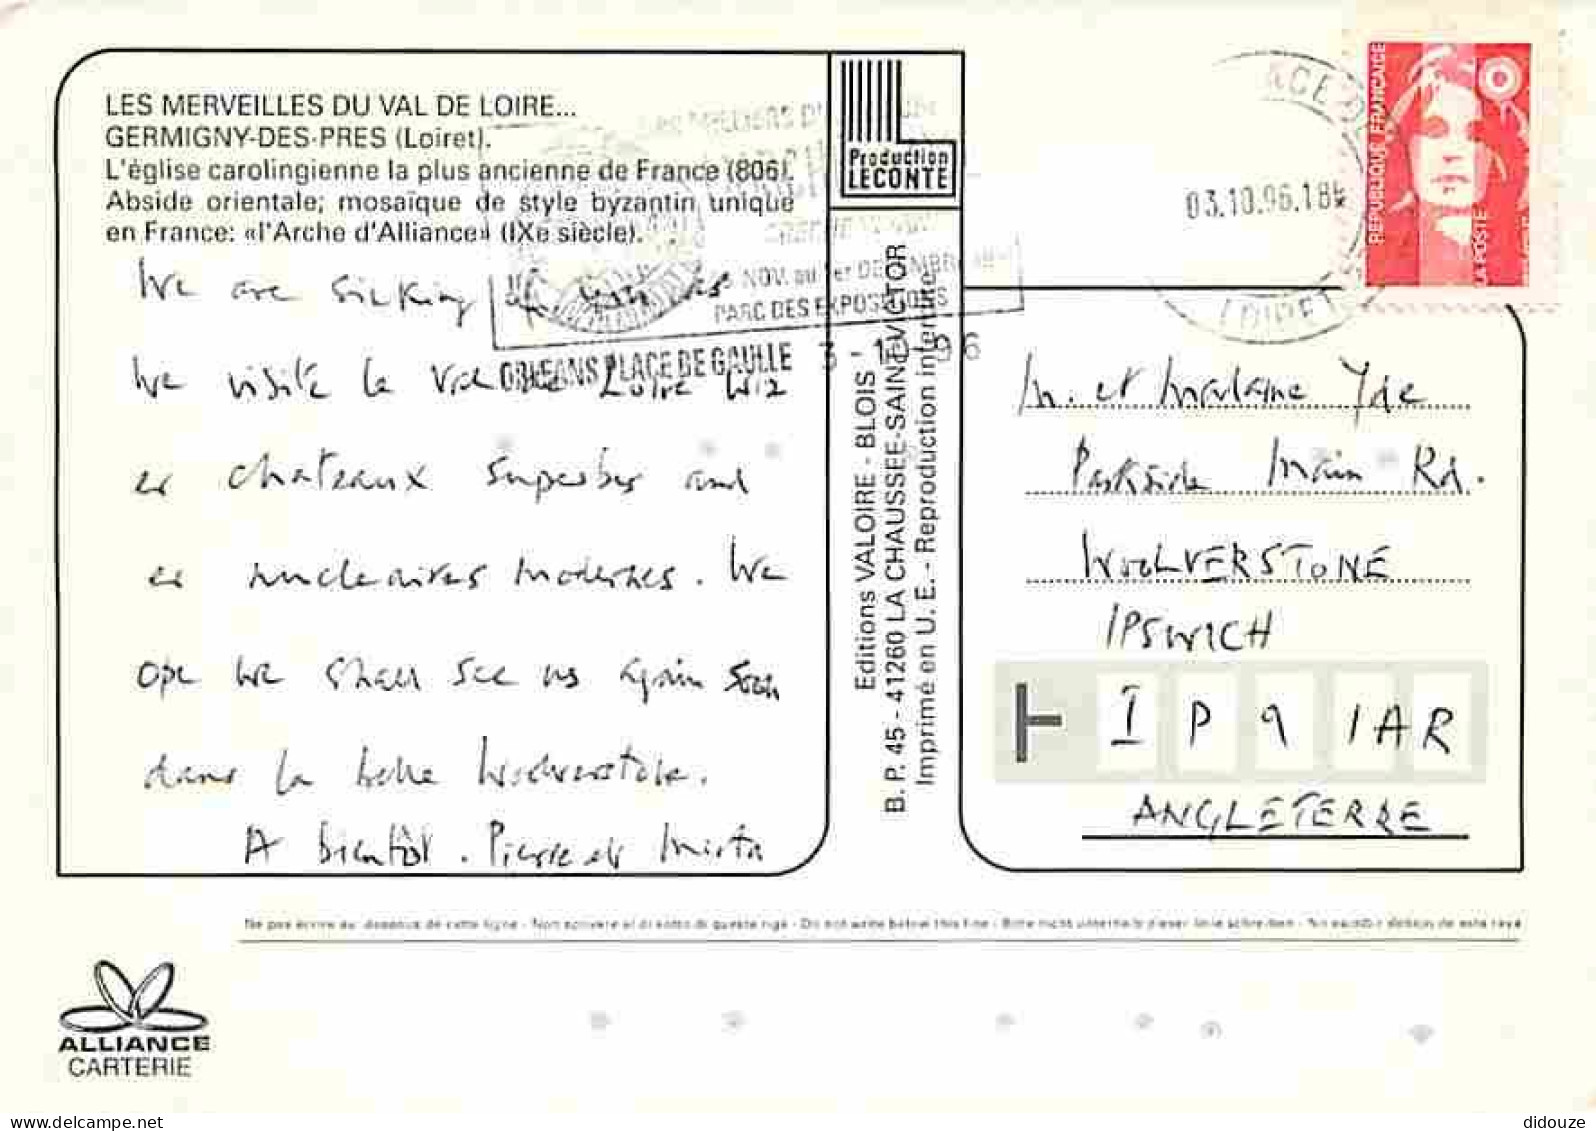 LES MERVEILLES DU VAL DE LOIRE...
GERMIGNY-DES-PRES (Loiret).
L'église carolingienne la plus ancienne de France (806).
Abside orientale; mosaïque de style byzantin unique
en France: «l'Arche d'Alliance» (IXe siècle).
We are sinking of you as
We visite le Val de Loire wiz
er chateaux superbes and
er nucleaires modernes. We
ope we shall see us again soon
dans la belle Woolverstone.
A bientôt. Pierre et
Production
LECONTE
NOV. au 1er DECEMBRE
PARC DES EXPOSITIONS
ORLEANS PLACE DE GAULLE 3-10-96
Editions VALOIRE - BLOIS
B. P. 45 - 41260 LA CHAUSSEE-SAINT-VICTOR
Imprimé en U. E. - Reproduction interdite
03.10.96.18
LOIRET
REPUBLIQUE FRANÇAISE
LA POSTE
M. et Madame
Parkside Main Rd.
WOOLVERSTONE
IPSWICH
I P 9 1AR
ANGLETERRE
Ne pas écrire au-dessous de cette ligne - Non scrivere al di sotto di questa riga - Do not write below this line - Bitte nicht unterhalb dieser Linie schreiben - No escribir debajo de esta raya
ALLIANCE
CARTERIE
www.delcampe.net
didouze